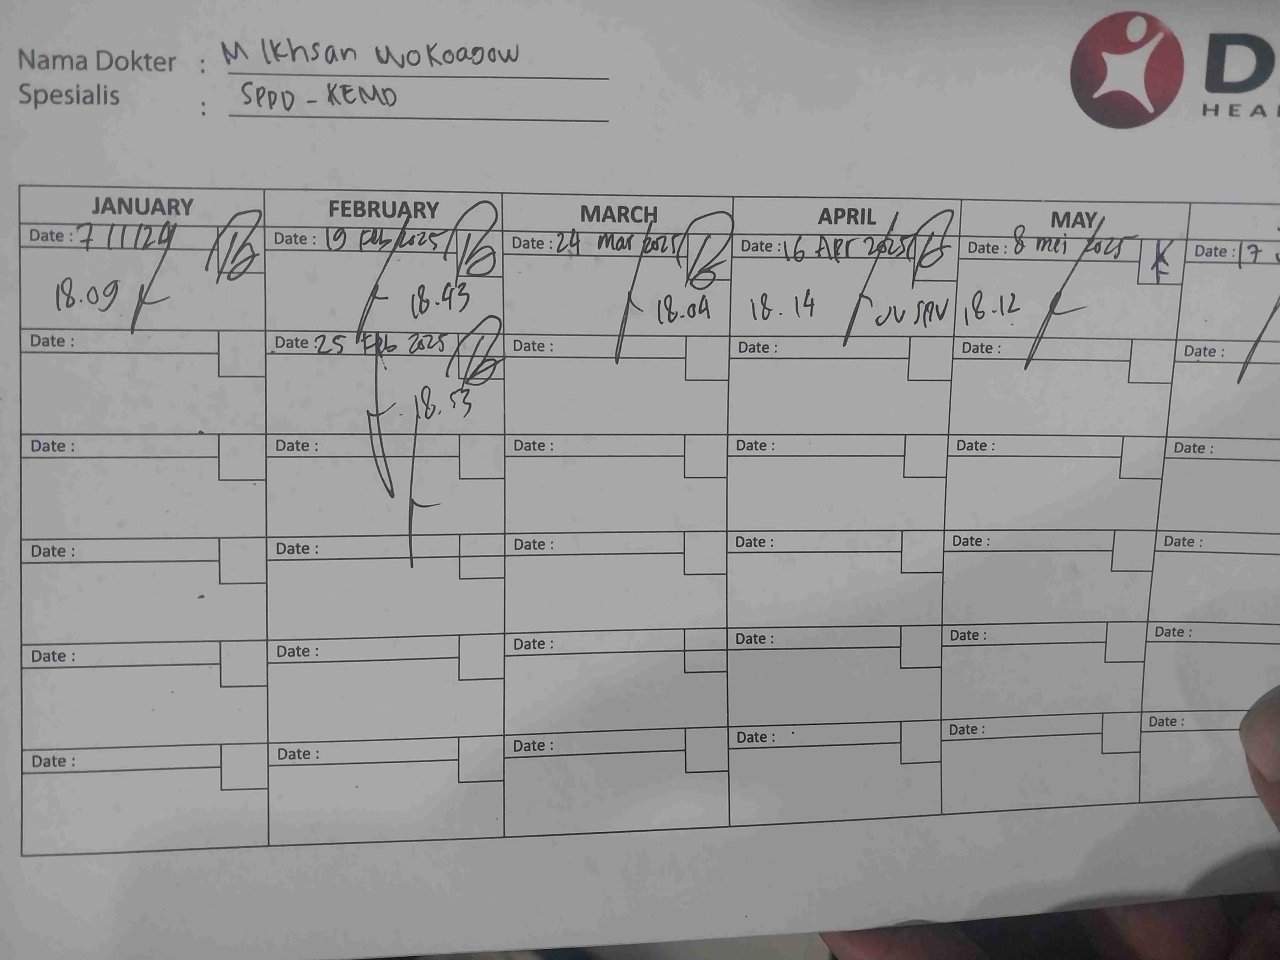 Nama Dokter : M Ikhsan Wokoagow
Spesialis : SPPD - KEMO
D
HEA
JANUARY FEBRUARY MARCH APRIL MAY
Date : 7 / 1 / 24 Date : 19 Feb 2025 Date : 24 Mar 2025 Date : 16 Apr 2025 Date : 8 mei 2025 Date : 17
18.09 18.43 18.04 18.14 UV SPV 18.12
Date : Date : 25 Feb 2025 Date : Date : Date : Date :
18.53
Date : Date : Date : Date : Date : Date :
Date : Date : Date : Date : Date : Date :
Date : Date : Date : Date : Date : Date :
Date : Date : Date : Date : Date : Date :